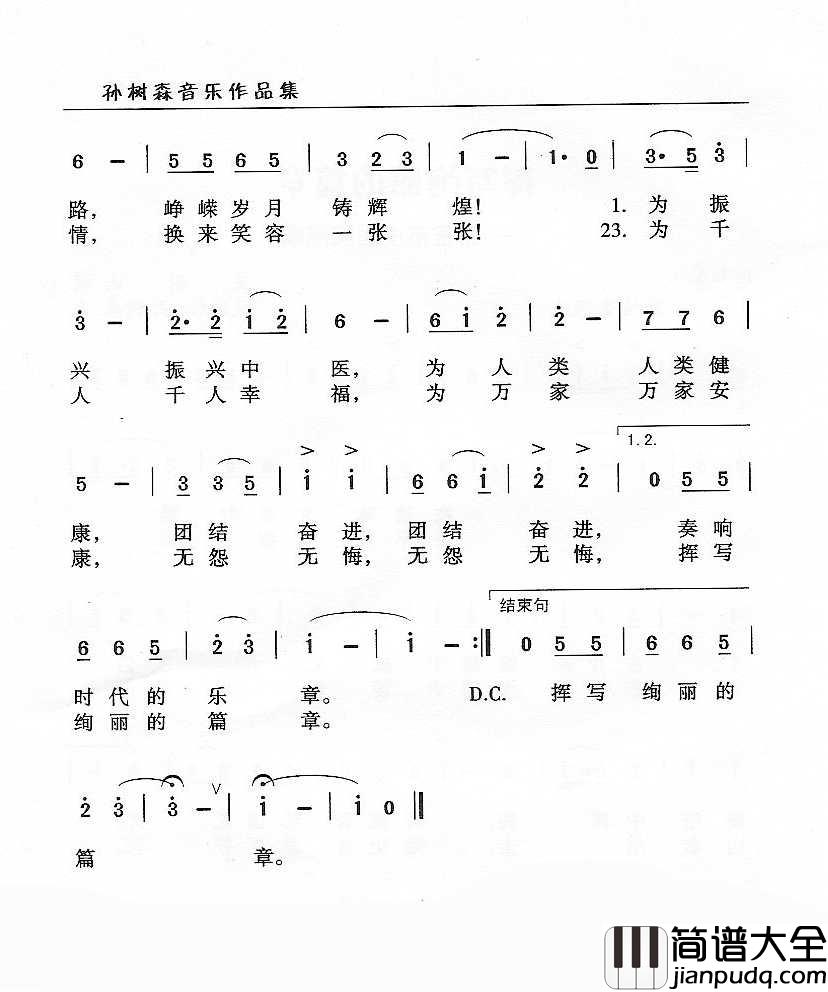 孙树森音乐作品集
6 — | 5 5 6 5 | 3 2 3 | 1 — | 1· 0 | 3· 5 3 |
路， 峥嵘岁月 铸辉 煌！ 1. 为振
情， 换来笑容 一张 张！ 23. 为千
3 — | 2· 2 1 2 | 6 — | 6 1 2 | 2 — | 7 7 6 |
兴 振兴中 医， 为人类 人类健
人 千人幸 福， 为万家 万家安
> > > > 1.2.
5 — | 3 3 5 | 1 1 | 6 6 1 | 2 2 | 0 5 5 |
康， 团结 奋进， 团结 奋进， 奏响
康， 无怨 无悔， 无怨 无悔， 挥写
结束句
6 6 5 | 2 3 | 1 — | 1 — :‖ 0 5 5 | 6 6 5 |
时代的 乐 章。 D.C. 挥写 绚丽的
绚丽的 篇 章。
2 3 | 3 — ∨ | 1 — | 1 0 ‖
篇 章。
简谱大全
jianpudq.com